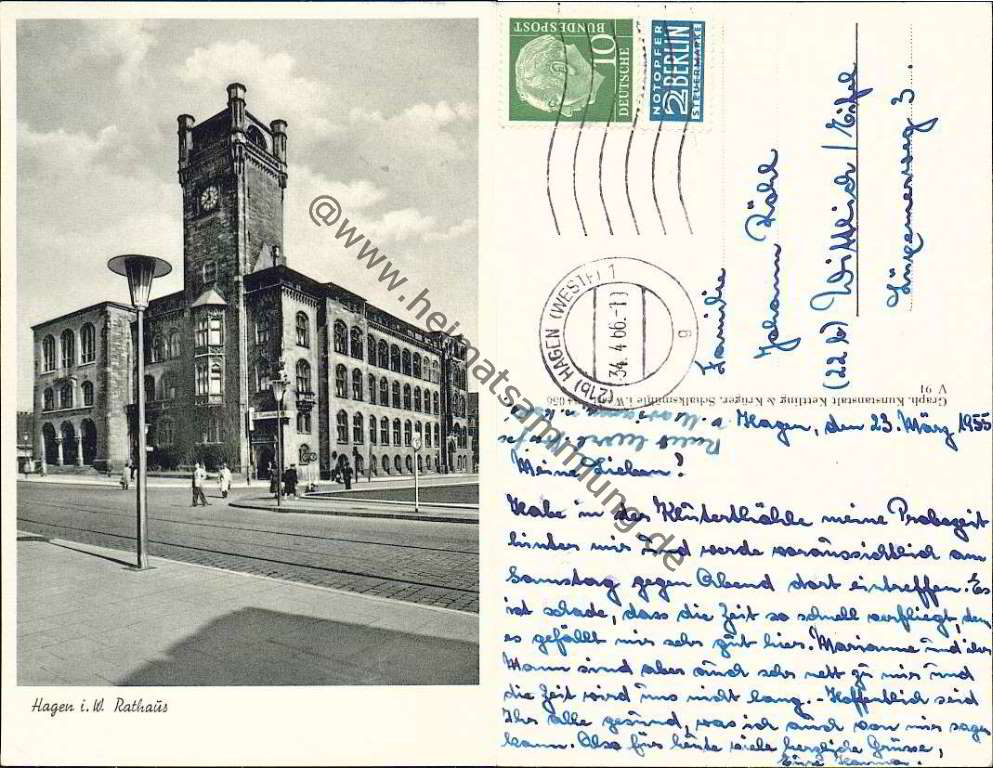 Hagen i. W. Rathaus
@www.heimatsammlung.de
DEUTSCHE
BUNDESPOST
10
NOTOPFER
2 BERLIN
STEUERMARKE
HAGEN (WESTF) 1
(21b)
g
Familie
Johann
(22 b) Wittlich / Eifel
3.
V 91
Graph. Kunstanstalt Kettling & Krüger, Schalksmühle i. W.
Hagen, den 23. März 1955
Meine Lieben!
Habe in der Klüterthöhle meine Probezeit
hinter mir und werde voraussichtlich am
Samstag gegen Abend dort eintreffen. Es
ist schade, dass die Zeit so schnell verfliegt, denn
es gefällt mir sehr gut hier. Marianne und ihr
Mann sind aber auch sehr nett zu mir und
die Zeit wird uns nicht lang. - Hoffentlich seid
Ihr alle gesund, was ich auch von mir sagen
kann. Also für heute viele herzliche Grüsse,
Eure